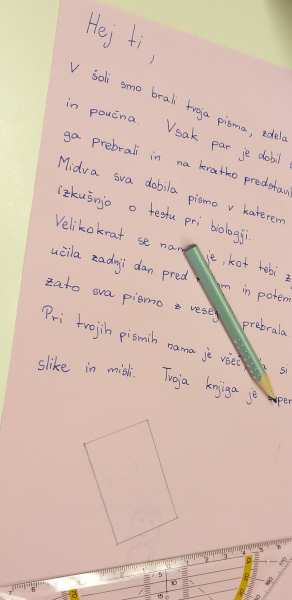 Hej ti,
V šoli smo brali tvoja pisma, zdela
in poučna. Vsak par je dobil
ga prebrali in na kratko predstavil
Midva sva dobila pismo v katerem
izkušnjo o testu pri biologiji.
Velikokrat se nama je, kot tebi
učila zadnji dan pred in potem
zato sva pismo z prebrala
Pri tvojih pismih nama je všeč si
slike in misli. Tvoja knjiga je super